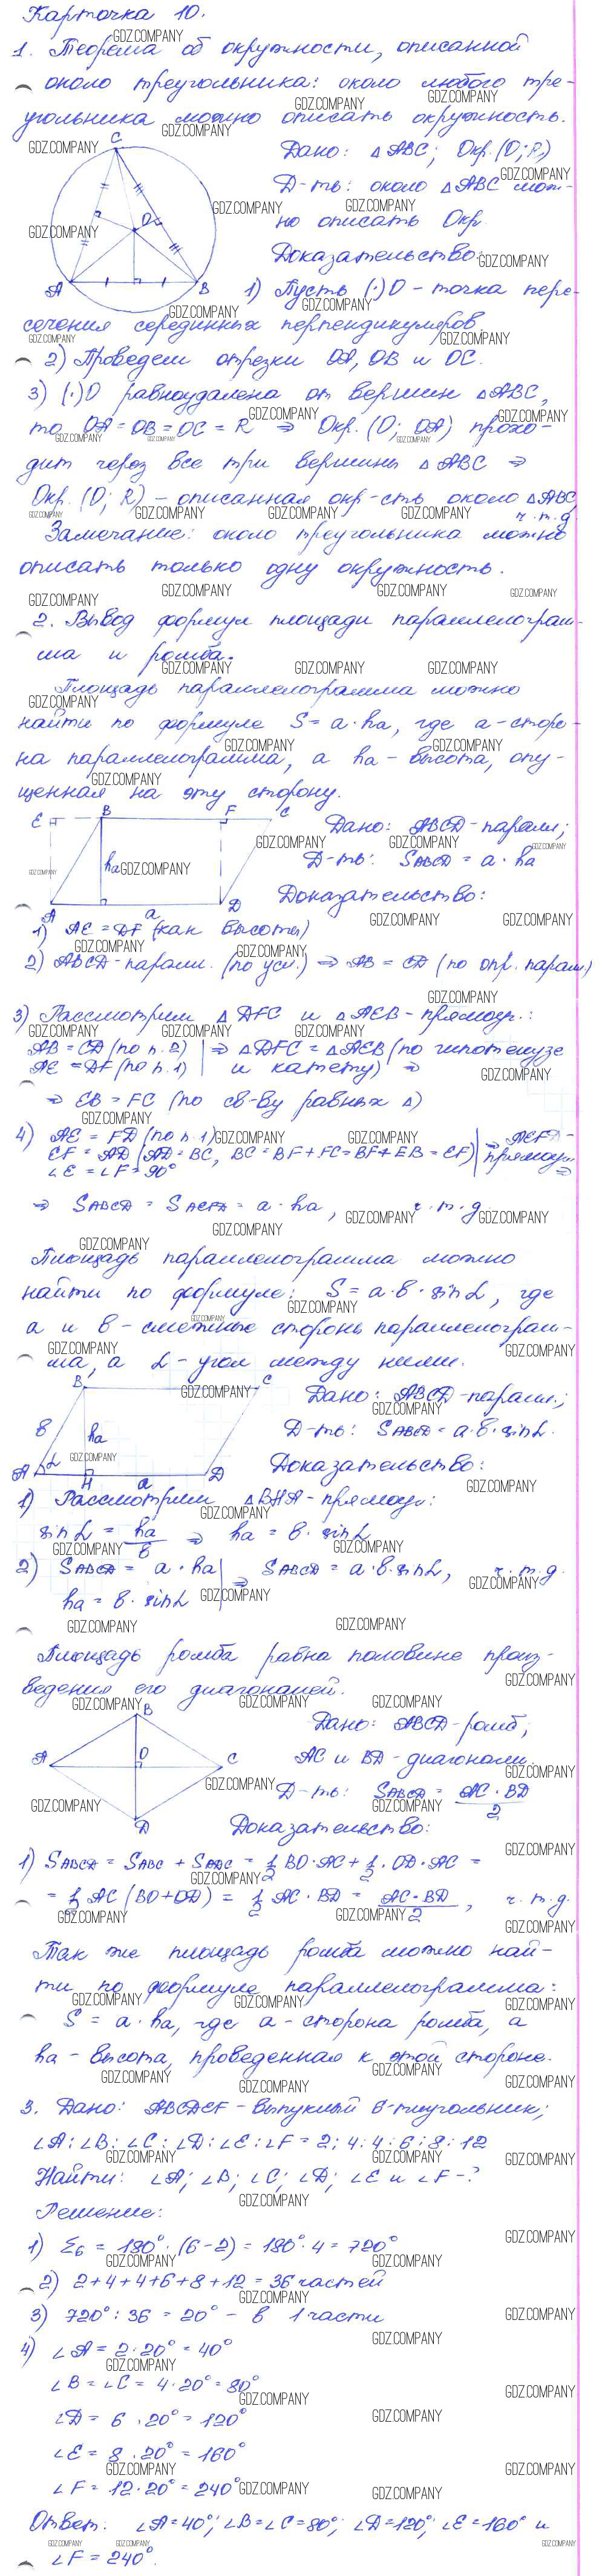 Карточка 10.
1. Теорема об окружности, описанной
около треугольника: около любого тре-
угольника можно описать окружность.
Дано: △ABC; Окр.(O;R)
Д-ть: около △ABC мож-
но описать Окр.
Доказательство:
C
O
A
B
1) Пусть (·)O - точка пере-
сечения серединных перпендикуляров.
2) Проведем отрезки OA, OB и OC.
3) (·)O равноудалена от вершин △ABC,
то OA = OB = OC = R ⇒ Окр. (O; OA) прохо-
дит через все три вершины △ABC ⇒
Окр. (O; R) - описанная окр-сть около △ABC
ч.т.д.
Замечание: около треугольника можно
описать только одну окружность.
2. Вывод формул площади параллелограм-
ма и ромба.
Площадь параллелограмма можно
найти по формуле S = a·ha, где a - сторо-
на параллелограмма, а ha - высота, опу-
щенная на эту сторону.
E B F C
ha
A a D
Дано: ABCD - паралл;
Д-ть: SABCD = a·ha
Доказательство:
1) AE = DF (как высоты)
2) ABCD - паралл. (по усл.) ⇒ AB = CD (по опр. парал)
3) Рассмотрим △DFC и △AEB - прямоуг.:
AB = CD (по п. 2) | ⇒ △DFC = △AEB (по гипотенузе
AE = DF (по п. 1) | и катету) ⇒
⇒ EB = FC (по св-ву равных △)
4) AE = FD (по п. 1)
EF = AD (AD = BC, BC = BF + FC = BF + EB = EF) | ⇒ AEFD - прямоуг ⇒
∠E = ∠F = 90°
⇒ SABCD = SAEFD = a·ha, ч.т.д
Площадь параллелограмма можно
найти по формуле: S = a·b·sin α, где
a и b - смежные стороны параллелограм-
ма, а α - угол между ними.
B C
b ha
A α H a D
Дано: ABCD - паралл.;
Д-ть: SABCD = a·b·sin α.
Доказательство:
1) Рассмотрим △BHA - прямоуг:
sin α = ha/b ⇒ ha = b·sin α
2) SABCD = a·ha | ⇒ SABCD = a·b·sin α, ч.т.д.
ha = b·sin α
Площадь ромба равна половине произ-
ведения его диагоналей.
B
A O C
D
Дано: ABCD - ромб;
AC и BD - диагонали.
Д-ть: SABCD = AC·BD/2
Доказательство:
1) SABCD = SABC + SADC = 1/2 BO·AC + 1/2·OD·AC =
= 1/2 AC (BO + OD) = 1/2 AC·BD = AC·BD/2, ч.т.д.
Так же площадь ромба можно най-
ти по формуле параллелограмма:
S = a·ha, где a - сторона ромба, а
ha - высота, проведенная к этой стороне.
3. Дано: ABCDEF - выпуклый 6-тиугольник;
∠A:∠B:∠C:∠D:∠E:∠F = 2:4:4:6:8:12
Найти: ∠A; ∠B; ∠C; ∠D; ∠E и ∠F - ?
Решение:
1) Σ6 = 180°·(6-2) = 180°·4 = 720°
2) 2+4+4+6+8+12 = 36 частей
3) 720°:36 = 20° - в 1 части
4) ∠A = 2·20° = 40°
∠B = ∠C = 4·20° = 80°
∠D = 6·20° = 120°
∠E = 8·20° = 160°
∠F = 12·20° = 240°
Ответ: ∠A = 40°; ∠B = ∠C = 80°; ∠D = 120°; ∠E = 160° и
∠F = 240°.
GDZ.COMPANY